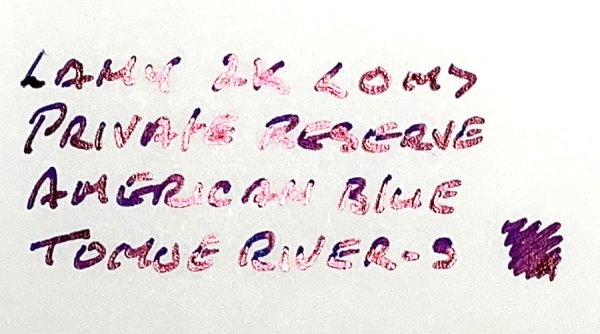 LAMY 2K <OM>
PRIVATE RESERVE
AMERICAN BLUE
TOMOE RIVER-S